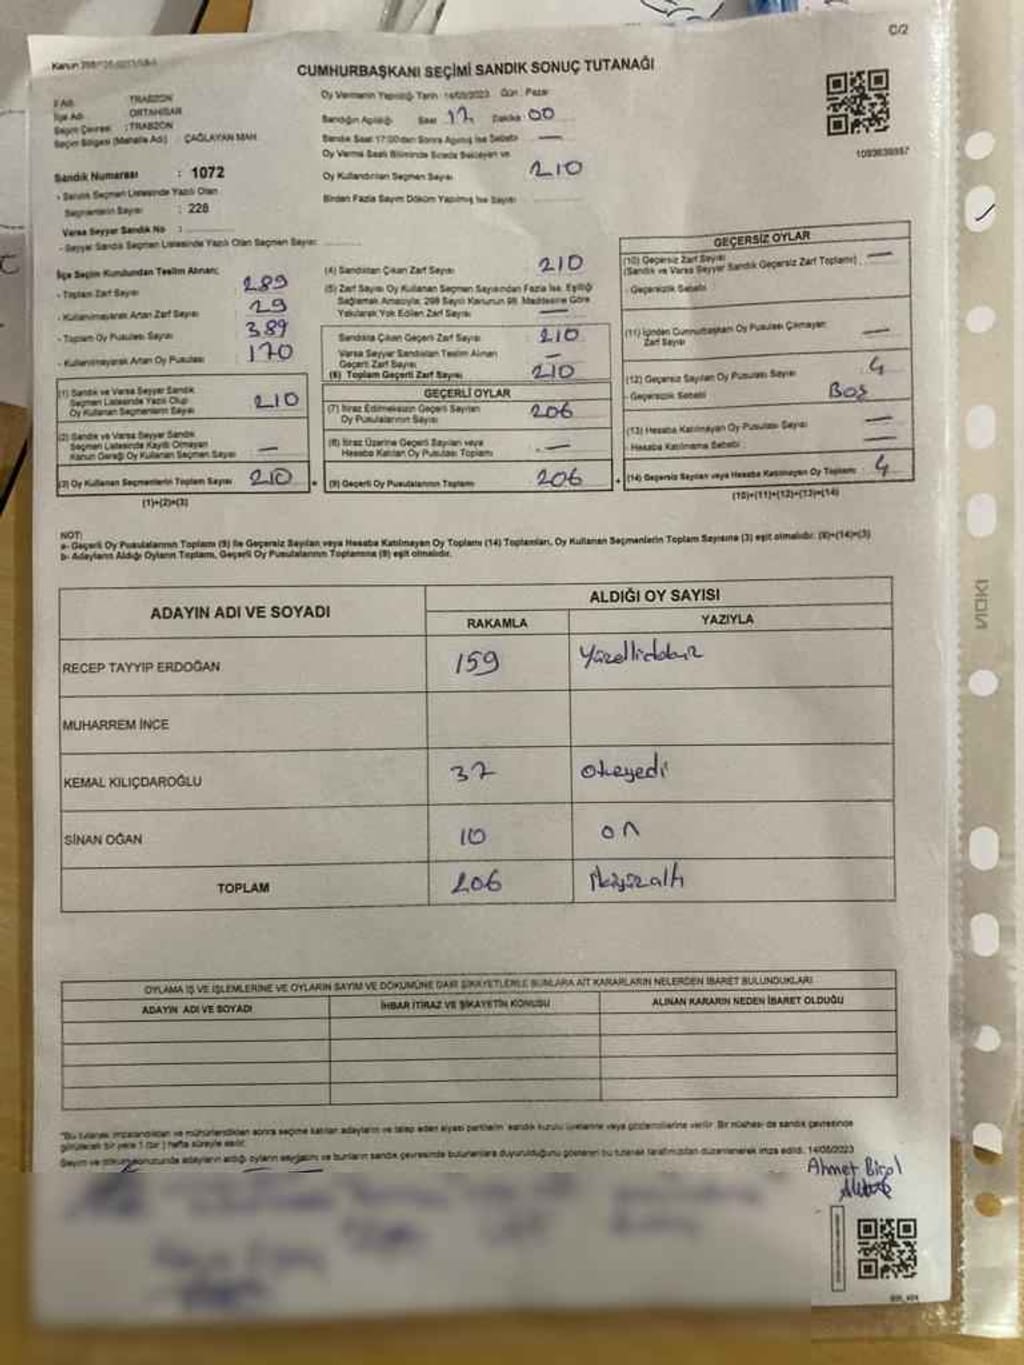 C/2
CUMHURBAŞKANI SEÇİMİ SANDIK SONUÇ TUTANAĞI
Kanun
İl Adı : TRABZON
İlçe Adı : ORTAHİSAR
Seçim Çevresi : TRABZON
Seçim Bölgesi (Mahalle Adı) : ÇAĞLAYAN MAH
Sandık Numarası : 1072
- Sandık Seçmen Listesinde Yazılı Olan
Seçmenlerin Sayısı : 228
Varsa Seyyar Sandık No :
- Seyyar Sandık Seçmen Listesinde Yazılı Olan Seçmen Sayısı:
Oy Vermenin Yapıldığı Tarih : 14/05/2023 Gün : Pazar
Sandığın Açıldığı Saat 17 Dakika 00
Sandık Saat 17:00'den Sonra Açılmış İse Sebebi —
Oy Verme Saati Bitiminde Sırada Bekleyen ve
Oy Kullandırılan Seçmen Sayısı 210
Birden Fazla Sayım Döküm Yapılmış İse Sayısı
İlçe Seçim Kurulundan Teslim Alınan;
- Toplam Zarf Sayısı 289
- Kullanılmayarak Artan Zarf Sayısı 29
- Toplam Oy Pusulası Sayısı 389
- Kullanılmayarak Artan Oy Pusulası 170
(1) Sandık ve Varsa Seyyar Sandık
Seçmen Listesinde Yazılı Olup
Oy Kullanan Seçmenlerin Sayısı 210
(2) Sandık ve Varsa Seyyar Sandık
Seçmen Listesinde Kayıtlı Olmayan
Kanun Gereği Oy Kullanan Seçmen Sayısı —
(3) Oy Kullanan Seçmenlerin Toplam Sayısı 210
(1)+(2)=(3)
(4) Sandıktan Çıkan Zarf Sayısı 210
(5) Zarf Sayısı Oy Kullanan Seçmen Sayısından Fazla İse, Eşitliği
Sağlamak Amacıyla, 298 Sayılı Kanunun 98. Maddesine Göre
Yakılarak Yok Edilen Zarf Sayısı —
Sandıkta Çıkan Geçerli Zarf Sayısı 210
Varsa Seyyar Sandıktan Teslim Alınan
Geçerli Zarf Sayısı —
(6) Toplam Geçerli Zarf Sayısı 210
GEÇERLİ OYLAR
(7) İtiraz Edilmeksizin Geçerli Sayılan
Oy Pusulalarının Sayısı 206
(8) İtiraz Üzerine Geçerli Sayılan veya
Hesaba Katılan Oy Pusulası Toplamı —
(9) Geçerli Oy Pusulalarının Toplamı 206
GEÇERSİZ OYLAR
(10) Geçersiz Zarf Sayısı —
(Sandık ve Varsa Seyyar Sandık Geçersiz Zarf Toplamı)
- Geçersizlik Sebebi :
(11) İçinden Cumhurbaşkanı Oy Pusulası Çıkmayan
Zarf Sayısı —
(12) Geçersiz Sayılan Oy Pusulası Sayısı 4
- Geçersizlik Sebebi : BOŞ
(13) Hesaba Katılmayan Oy Pusulası Sayısı —
- Hesaba Katılmama Sebebi : —
(14) Geçersiz Sayılan veya Hesaba Katılmayan Oy Toplamı 4
(10)+(11)+(12)+(13)=(14)
NOT:
a- Geçerli Oy Pusulalarının Toplamı (9) ile Geçersiz Sayılan veya Hesaba Katılmayan Oy Toplamı (14) Toplamları, Oy Kullanan Seçmenlerin Toplam Sayısına (3) eşit olmalıdır. (9)+(14)=(3)
b- Adayların Aldığı Oyların Toplamı, Geçerli Oy Pusulalarının Toplamına (9) eşit olmalıdır.
ADAYIN ADI VE SOYADI ALDIĞI OY SAYISI
RAKAMLA YAZIYLA
RECEP TAYYIP ERDOĞAN 159 Yüzellidokuz
MUHARREM İNCE
KEMAL KILIÇDAROĞLU 37 otuzyedi
SİNAN OĞAN 10 on
TOPLAM 206 İkiyüzaltı
OYLAMA İŞ VE İŞLEMLERİNE VE OYLARIN SAYIM VE DÖKÜMÜNE DAİR ŞİKAYETLERLE BUNLARA AİT KARARLARIN NELERDEN İBARET BULUNDUKLARI
ADAYIN ADI VE SOYADI İHBAR İTİRAZ VE ŞİKAYETİN KONUSU ALINAN KARARIN NEDEN İBARET OLDUĞU
"Bu tutanak imzalandıktan ve mühürlendikten sonra seçime katılan adayların ve talep eden siyasi partilerin sandık kurulu üyelerine veya gözlemcilerine verilir. Bir nüshası da sandık çevresinde
görülecek bir yere 1 (bir) hafta süreyle asılır.
Seçim ve döküm sonucunda adayların aldığı oyların sayısını ve bunların sandık çevresinde bulunanlara duyurulduğunu gösteren bu tutanak tarafımızdan düzenlenerek imza edildi. 14/05/2023
Ahmet Birol
NOKI